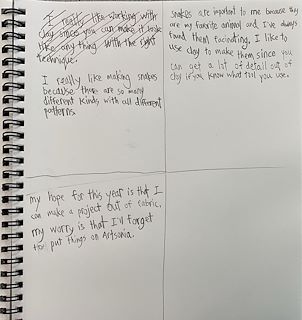 I really like working with
clay since you can make it look
like any thing with the right
technique.
I really like making snakes
because there are so many
different kinds with all different
patterns.
Snakes are important to me because they
are my favorite animal and I've always
found them facinating, I like to
use clay to make them since you
can get a lot of detail out of
clay if you know what tool you use.
my hope for this year is that I
can make a project out of fabric.
my worry is that I'll forget
to put things on Artsonia.